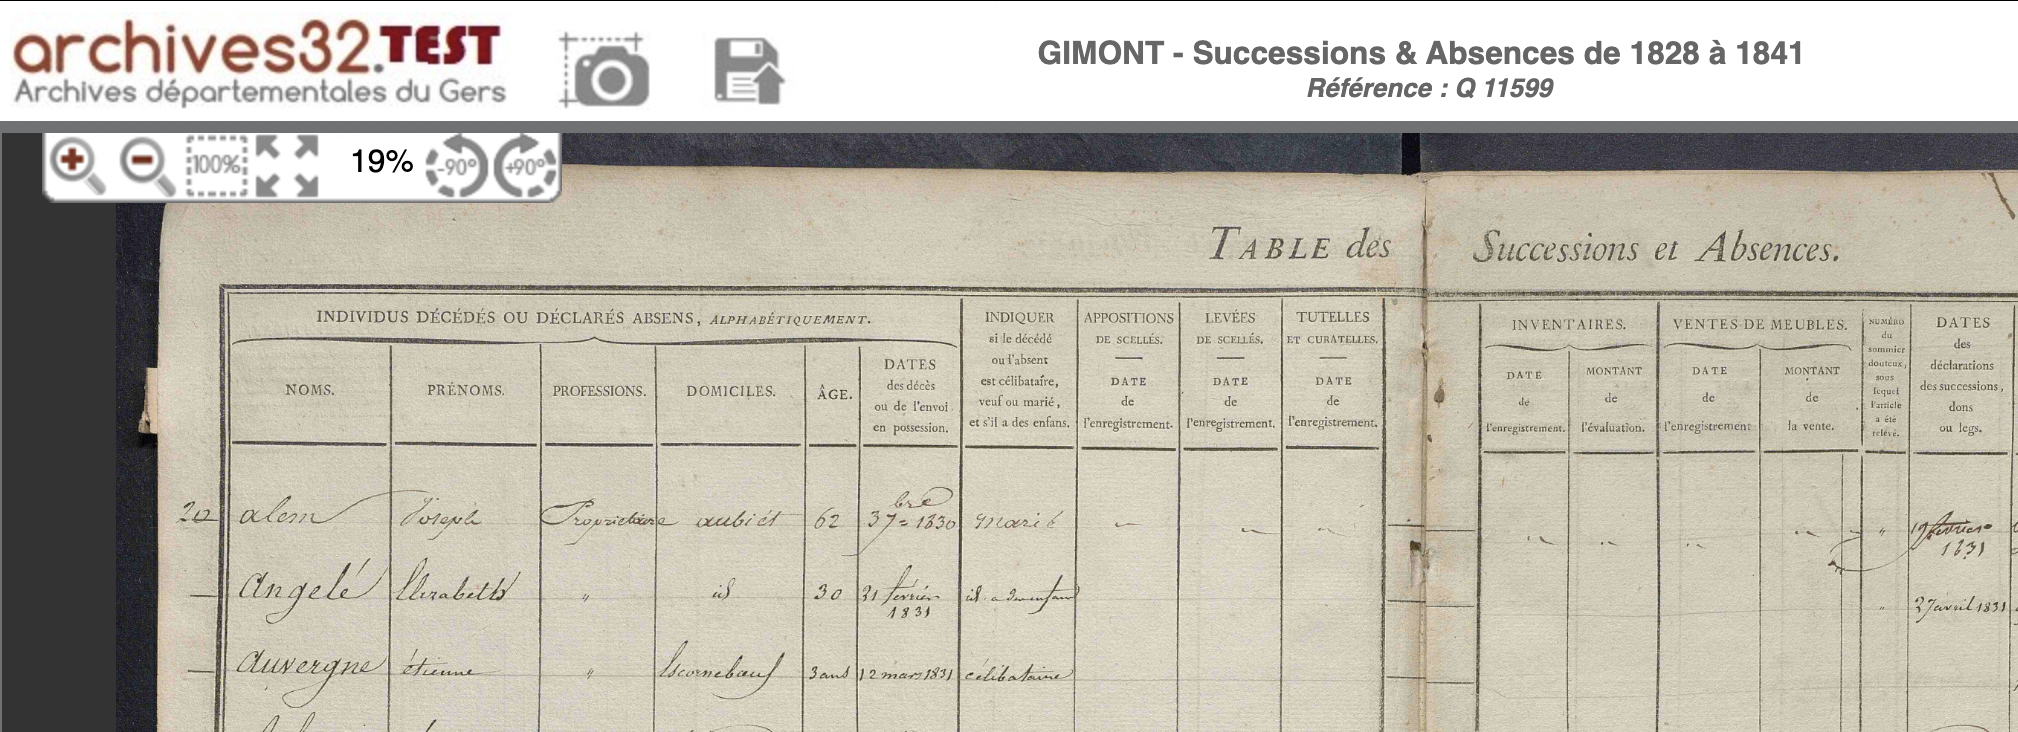 archives32.TEST
Archives départementales du Gers
GIMONT - Successions & Absences de 1828 à 1841
Référence : Q 11599
100% 19% -90° +90°
TABLE des Successions et Absences.
INDIVIDUS DÉCÉDÉS OU DÉCLARÉS ABSENS, ALPHABÉTIQUEMENT.
NOMS.
PRÉNOMS.
PROFESSIONS.
DOMICILES.
ÂGE.
DATES
des décès
ou de l'envoi
en possession.
INDIQUER
si le décédé
ou l'absent
est célibataire,
veuf ou marié,
et s'il a des enfans.
APPOSITIONS
DE SCELLÉS.
DATE
de
l'enregistrement.
LEVÉES
DE SCELLÉS.
DATE
de
l'enregistrement.
TUTELLES
ET CURATELLES.
DATE
de
l'enregistrement.
INVENTAIRES.
DATE
de
l'enregistrement.
MONTANT
de
l'évaluation.
VENTES DE MEUBLES.
DATE
de
l'enregistrement
MONTANT
de
la vente.
NUMÉRO
du
sommier
douteux,
sous
lequel
l'article
a été
relevé.
DATES
des
déclarations
des successions,
dons
ou legs.
alem Joseph Propriétaire aubiet 62 1830 marié " " " " " " " " février 1831
Angelé Elizabeth " id 30 21 février 1831 id a " 27 avril 1831
Auvergne étienne " Escornebœuf 3 ans 12 mars 1831 célibataire